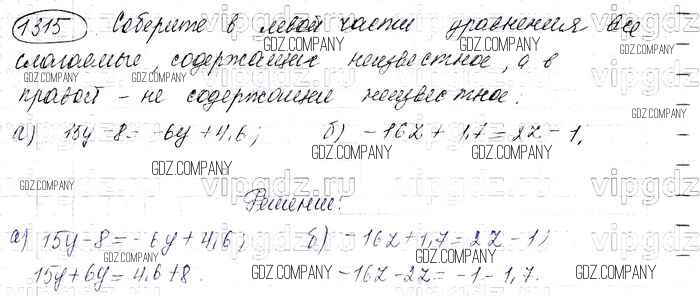 1315 Соберите в левой части уравнения все
слагаемые, содержащие неизвестное, а в
правой - не содержащие неизвестное:
а) 15y-8=-6y+4,6; б) -16z+1,7=2z-1.
Решение:
а) 15y-8=-6y+4,6; б) -16z+1,7=2z-1;
15y+6y=4,6+8. -16z-2z=-1-1,7.
GDZ.COMPANY
vipgdz.ru